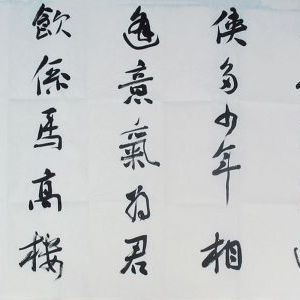 俠多少年相
逢意氣為君
飲係馬高樓